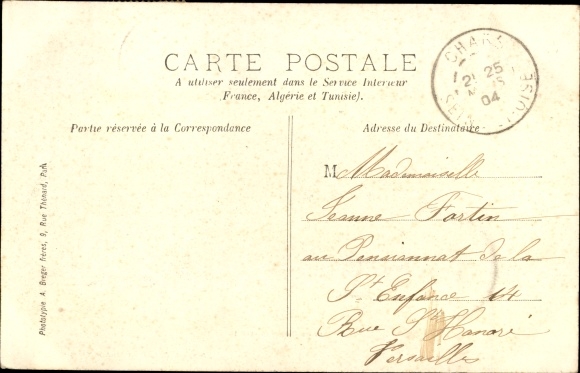 CARTE POSTALE
A utiliser seulement dans le Service Intérieur
(France, Algérie et Tunisie).
Partie réservée à la Correspondance
Adresse du Destinataire
25
04
SEINE
OISE
M Mademoiselle
Jeanne Fortin
au Pensionnat de la
St Enfance 14
Rue St Honoré
Versailles
Phototypie A. Breger frères, 9, Rue Thénard, Paris